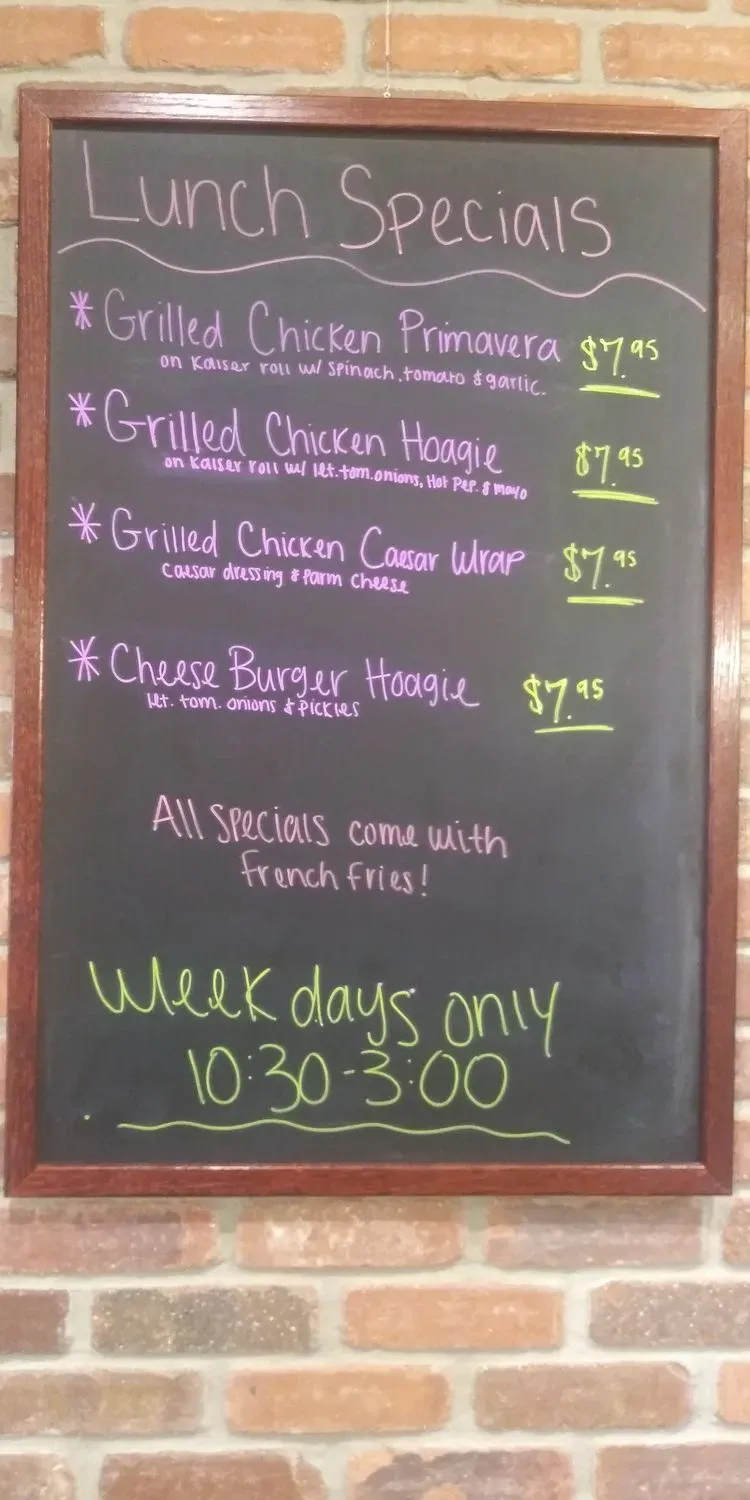 Lunch Specials
* Grilled Chicken Primavera $7.95
on Kaiser roll w/ spinach, tomato & garlic.
* Grilled Chicken Hoagie $7.95
on Kaiser roll w/ let. tom. onions, Hot Pep. & mayo
* Grilled Chicken Caesar Wrap $7.95
Caesar dressing & Parm Cheese
* Cheese Burger Hoagie $7.95
let. tom. onions & pickles
All specials come with
French Fries!
Week days only
10:30-3:00